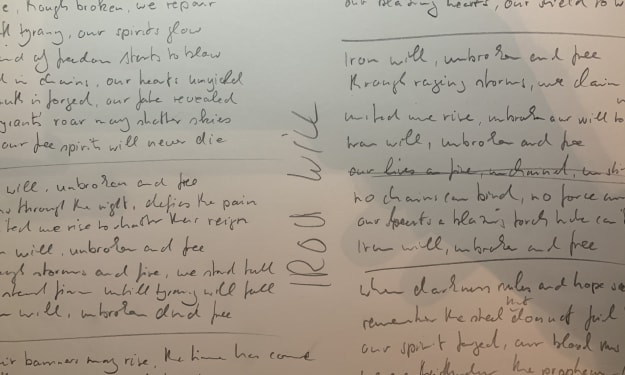 , though broken, we repair
tyrany, our spirits glow
of freedom starts to blow
in chains, our hearts unyield
is forged, our fate revealed
roar may shatter skies
our free spirit will never die
will, unbroken and free
through the night, defies the pain
we rise to shatter their reign
will, unbroken and free
storms and fire, we stand tall
stand firm untill tyrany will fall
will, unbroken and free
banners may rise, the time has come
IRON WILL
our blazing hearts, our shield to
Iron will, unbroken and free
through raging storms, we claim
united we rise, unbroken our will to
Iron will, unbroken and free
our lives a fire, unchained,
no chains can bind, no force can
our spirits a blazing torch
Iron will, unbroken and free
when darkness rules and hope
remember the steel that does not
our spirit forged, our blood
the prophem